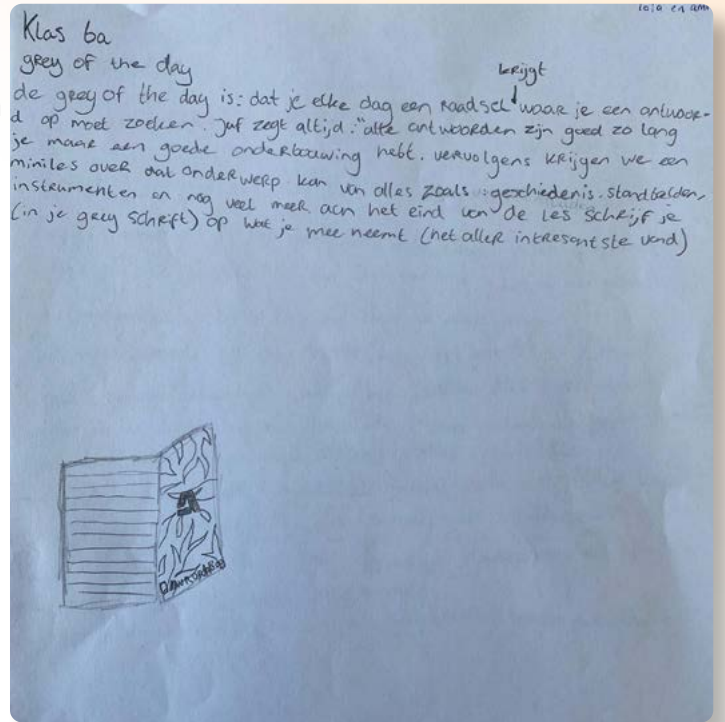 lola en ami
Klas 6a
grey of the day
krijgt
de grey of the day is: dat je elke dag een raadsel waar je een antwoor-
d op moet zoeken. Juf zegt altijd: "alle antwoorden zijn goed zo lang
je maar een goede onderbouwing hebt. vervolgens krijgen we een
miniles over dat onderwerp kan van alles zoals: geschiedenis. standbeelden,
instrumenten en nog veel meer aan het eind van de les schrijf je
(in je grey schrift) op wat je mee neemt (het aller intresantste vond)